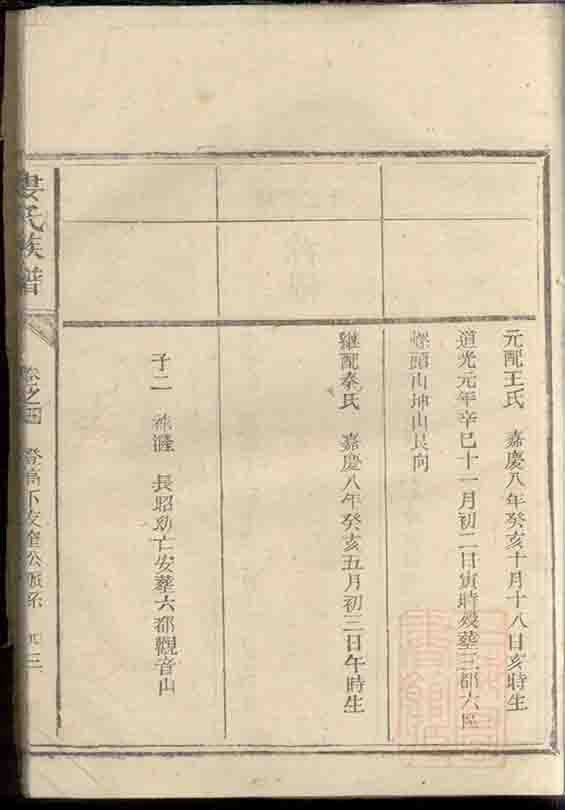 元配王氏 嘉慶八年癸亥十月十八日亥時生
道光元年辛巳十一月初二日寅時殁葬三都六區
螺頭山坤山艮向
繼配秦氏 嘉慶八年癸亥五月初三日午時生
子二 長昭幼亡安葬六都觀音山
婁氏族譜
卷之四 登高下友奎公派系 三